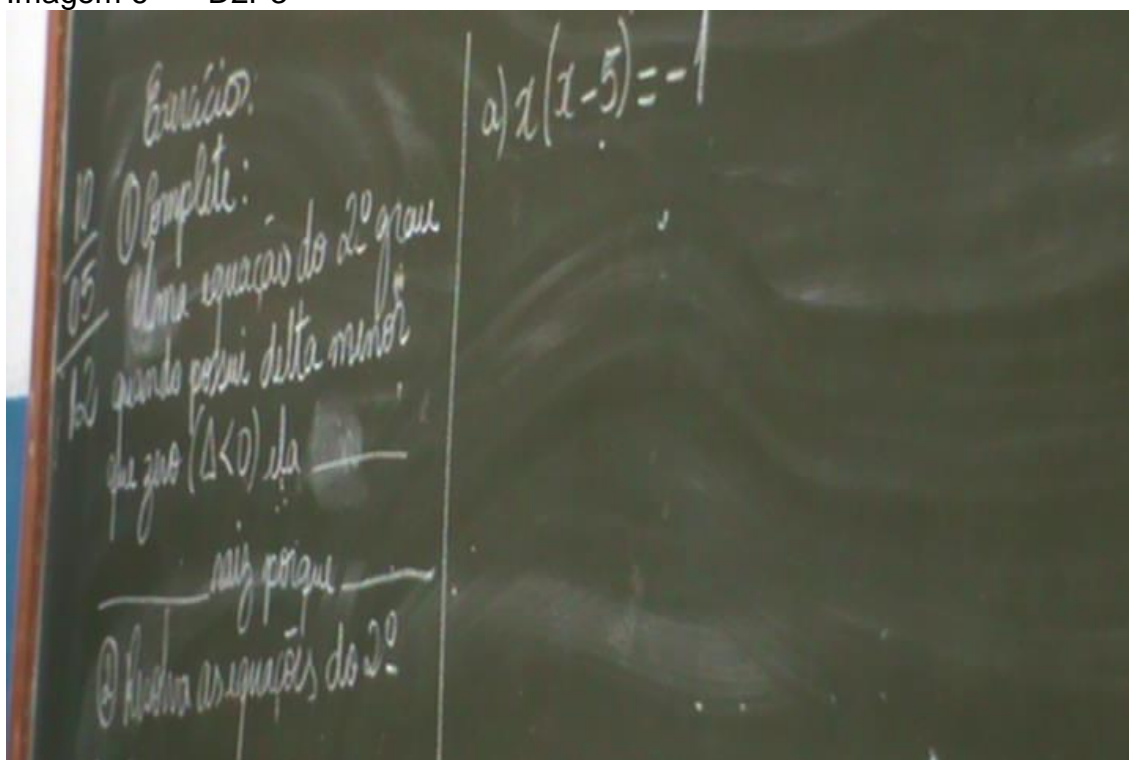 Exercício:
10
05
12
① Complete:
Uma equação do 2º grau
quando possui delta menor
que zero (Δ<0) ela ______
______ raiz porque ______
② Resolva as equações do 2º
a) x(x-5)=-1